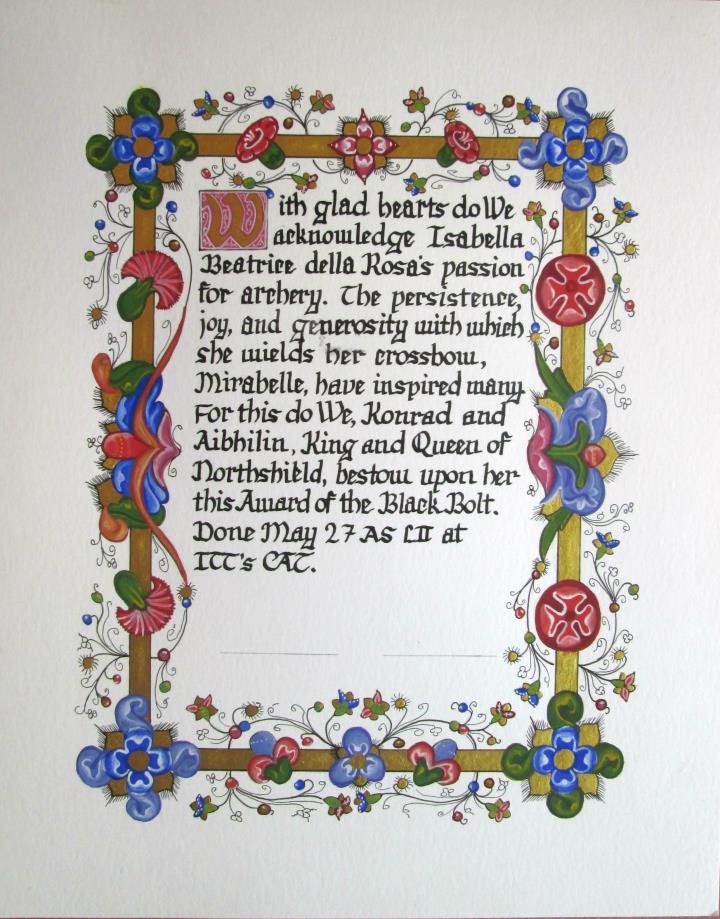 With glad hearts do We
acknowledge Isabella
Beatrice della Rosa's passion
for archery. The persistence,
joy, and generosity with which
she wields her crossbow,
Mirabelle, have inspired many.
For this do We, Konrad and
Aibhilin, King and Queen of
Northshield, bestow upon her
this Award of the Black Bolt.
Done May 27 AS LII at
ITC's CAT.